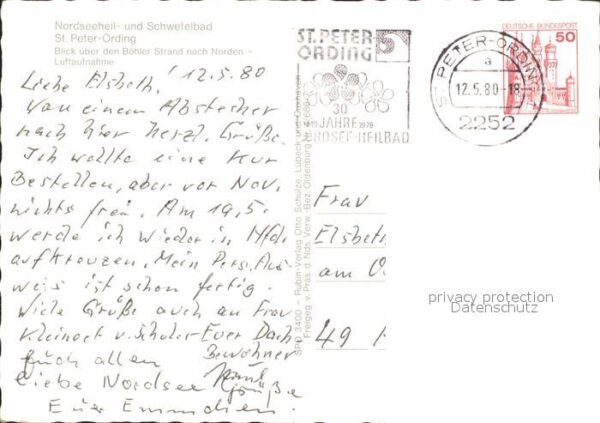 Nordseeheil- und Schwefelbad
St. Peter-Ording
Blick über den Böhler Strand nach Norden -
Luftaufnahme
Liebe Elsbeth! 12.5.80
Von einem Abstecher
nach hier herzl. Grüße.
Ich wollte eine Kur
Bestellen, aber vor Nov.
nichts frei. Am 19.5.
werde ich wieder in Hfd.
aufkreuzen. Mein Pers. Aus-
weis ist schon fertig.
Viele Grüße auch an Frau
Kleinert v. Schuler-Euer Dach
Bewohner
Euch allen
liebe Nordsee
Grüße
Euer Emmchen.
SPO 3400 - Rubin-Verlag Otto Schulze, Lübeck und Cuxhaven
Freigeg. v. Präs. d. Nds. Verw.-Bez. Oldenburg
ST. PETER
ORDING
30
JAHRE
1979
NORDSEE-HEILBAD
ST. PETER-ORDING
a
12.5.80-18
2252
DEUTSCHE BUNDESPOST
50
Frau
Elsbeth
am
49
privacy protection
Datenschutz